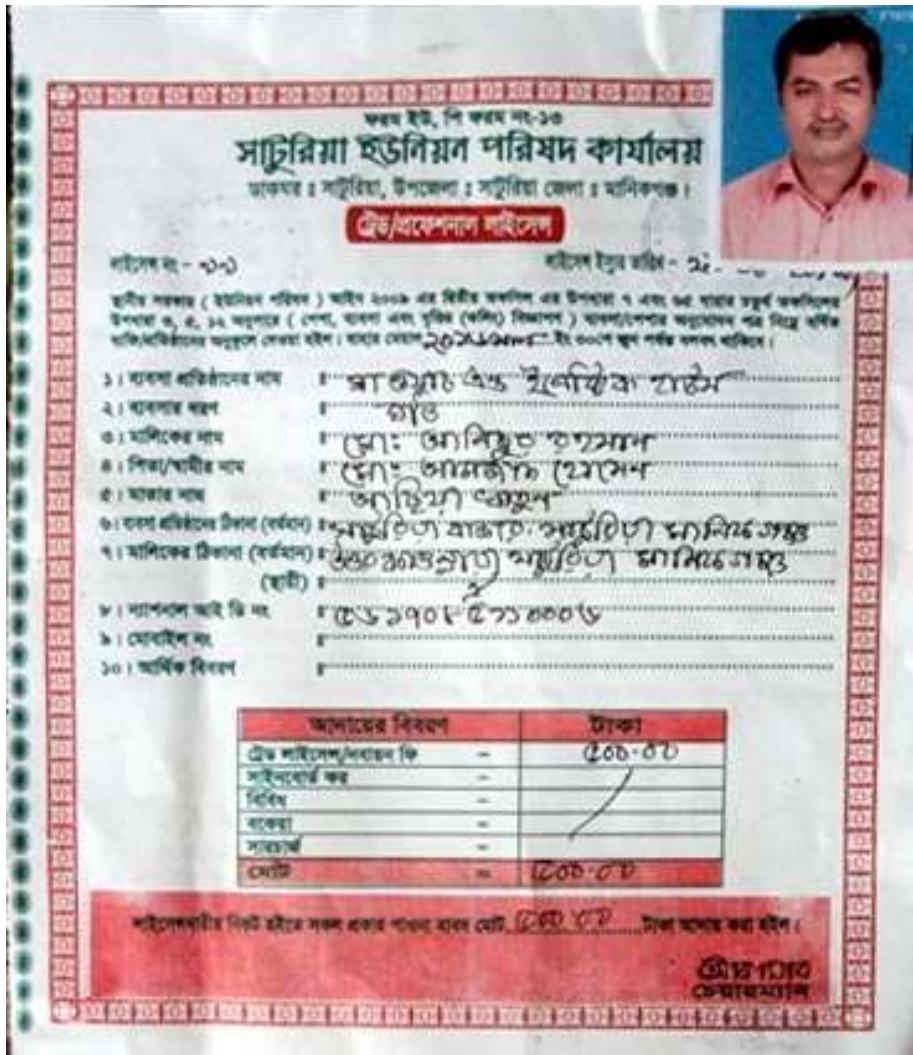 ফরম ইউ, পি ফরম নং-১৩
সাটুরিয়া ইউনিয়ন পরিষদ কার্যালয়
ডাকঘর ঃ সাটুরিয়া, উপজেলা ঃ সাটুরিয়া জেলা ঃ মানিকগঞ্জ।
ট্রেড/প্রফেশনাল লাইসেন্স
লাইসেন্স নং - লাইসেন্স ইস্যুর তারিখ -
স্থানীয় সরকার ( ইউনিয়ন পরিষদ ) আইন ২০০৯ এর দ্বিতীয় তফসিল এর উপধারা ৭ এবং ৬৫ ধারার চতুর্থ তফসিলের
উপধারা ৩, ৫, ১২ অনুসারে ( পেশা, ব্যবসা এবং বৃত্তির (কলিং) বিজ্ঞাপন ) ব্যবসা/পেশার অনুমোদন পত্র নিম্নে বর্ণিত
ব্যক্তি/প্রতিষ্ঠানের অনুকূলে দেওয়া হইল। যাহার মেয়াদ ইং ৩০শে জুন পর্যন্ত বলবৎ থাকিবে।
১। ব্যবসা প্রতিষ্ঠানের নাম ঃ এন্ড ইলেক্ট্রিক হাউস
২। ব্যবসার ধরণ ঃ
৩। মালিকের নাম ঃ মোঃ রহমান
৪। পিতা/স্বামীর নাম ঃ মোঃ হোসেন
৫। মাতার নাম ঃ খাতুন
৬। ব্যবসা প্রতিষ্ঠানের ঠিকানা (বর্তমান) ঃ সাটুরিয়া বাজার, সাটুরিয়া মানিকগঞ্জ
৭। মালিকের ঠিকানা (বর্তমান) ঃ সাটুরিয়া মানিকগঞ্জ
(স্থায়ী) ঃ
৮। ন্যাশনাল আই ডি নং ঃ
৯। মোবাইল নং ঃ
১০। আর্থিক বিবরণ ঃ
আদায়ের বিবরণ টাকা
ট্রেড লাইসেন্স/নবায়ন ফি - ৫০০.০০
সাইনবোর্ড কর -
বিবিধ -
বকেয়া -
সারচার্জ -
মোট = ৫০০.০০
লাইসেন্সধারীর নিকট হইতে সকল প্রকার পাওনা বাবদ মোট ৫০০.০০ টাকা আদায় করা হইল।
চেয়ারম্যান